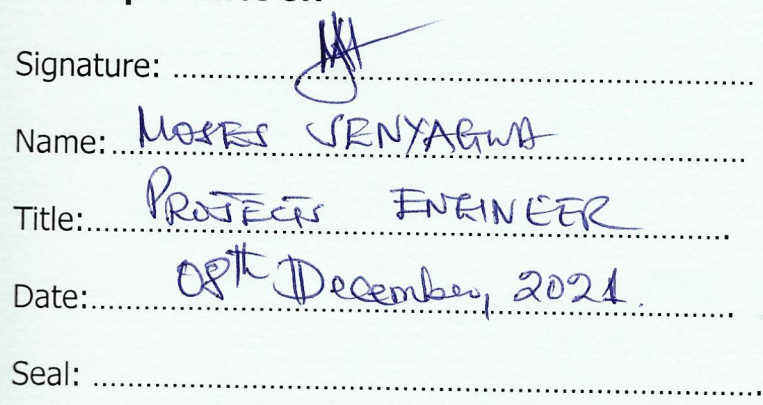 Signature:
Name: MOSES SENYAGWA
Title: PROJECTS ENGINEER
Date: 08th December, 2021.
Seal: